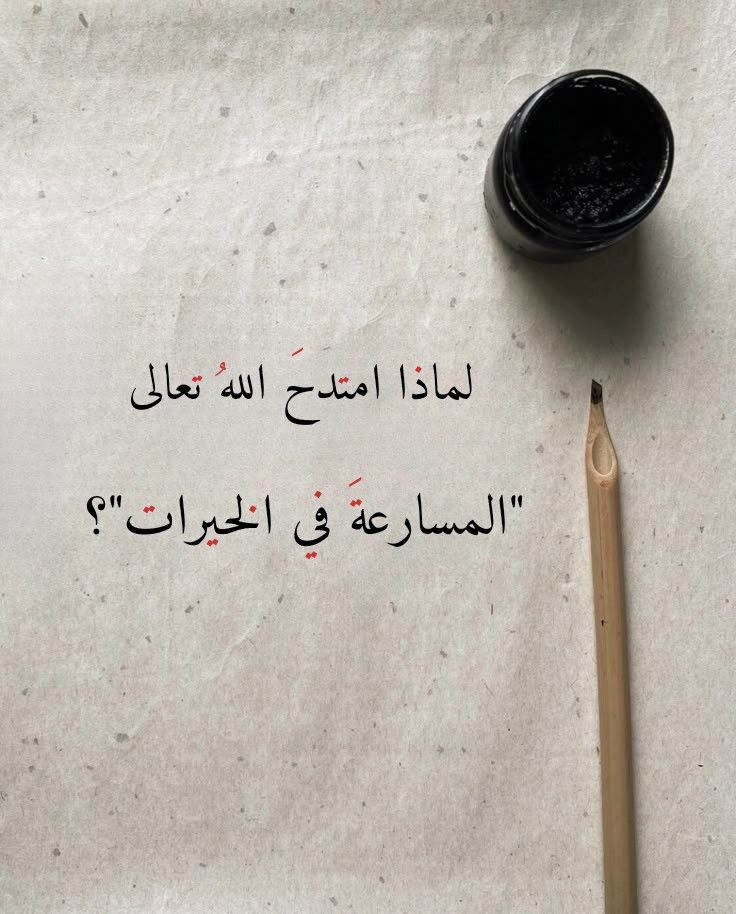 لماذا امتدحَ اللهُ تعالى
"المسارعةَ في الخيرات"؟